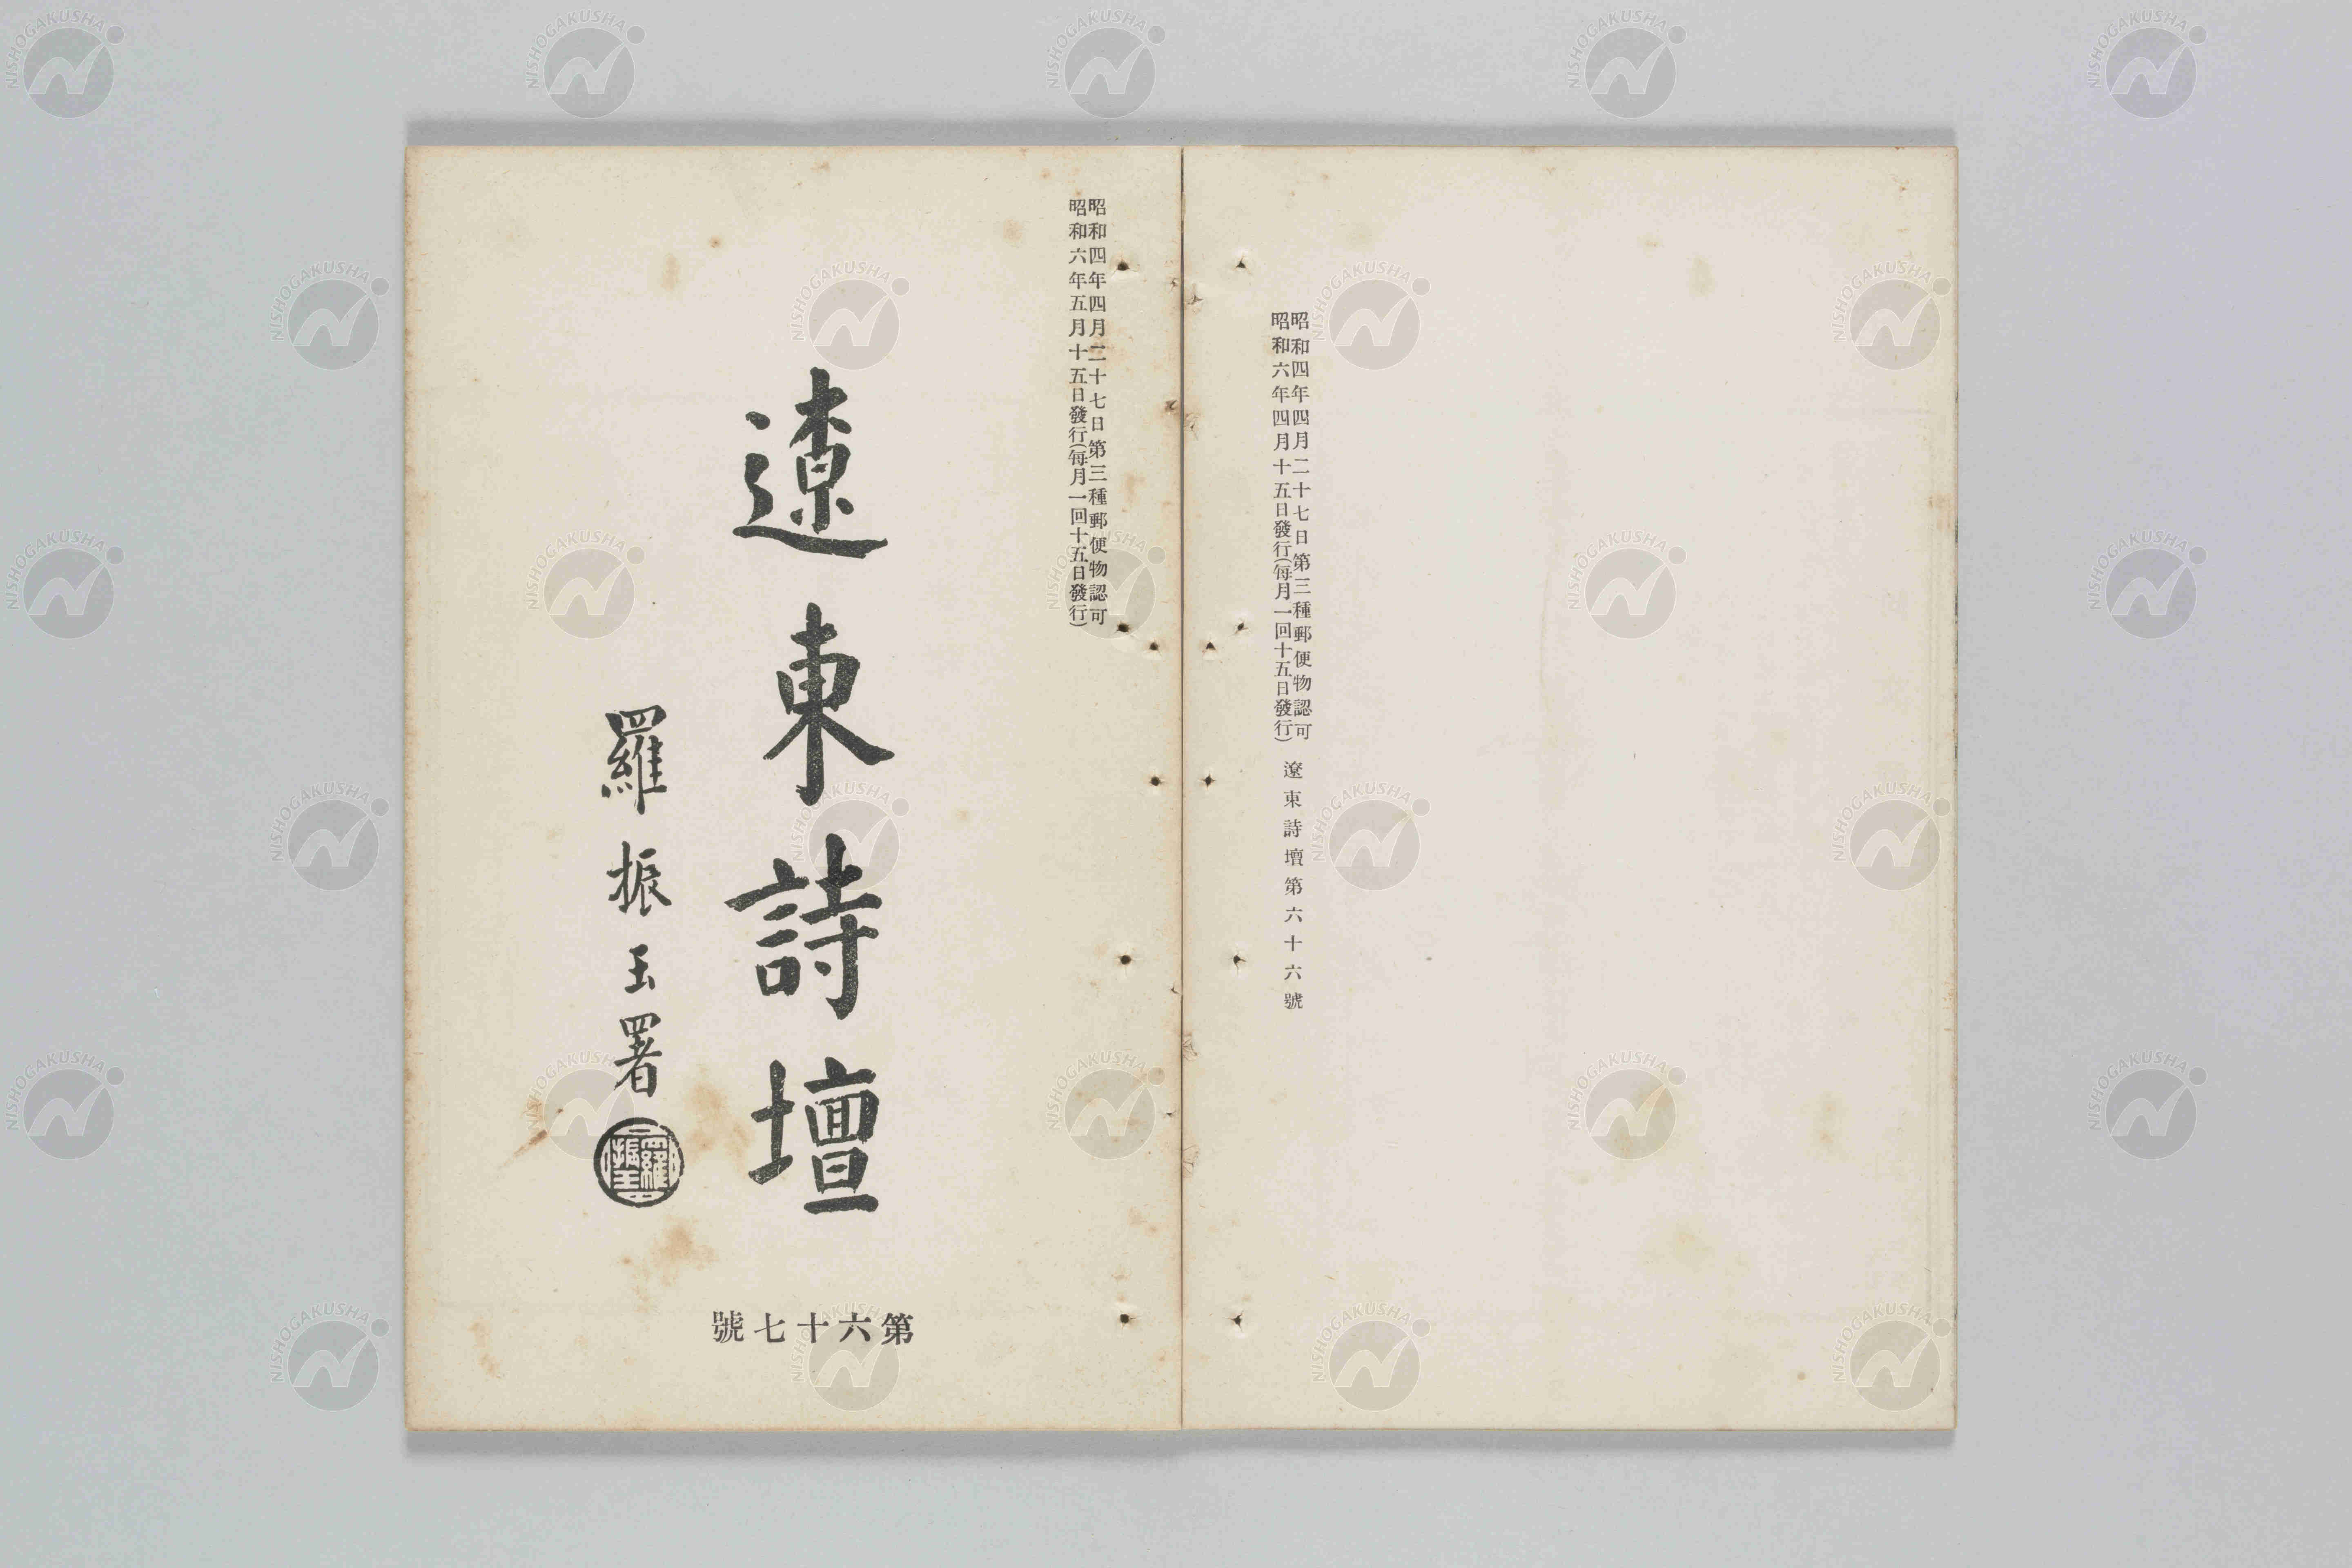 昭和四年四月二十七日第三種郵便物認可
昭和六年四月十五日發行(每月一回十五日發行)
遼東詩壇第六十六號
昭和四年四月二十七日第三種郵便物認可
昭和六年五月十五日發行(每月一回十五日發行)
遼東詩壇
羅振玉署
羅振玉
第六十七號
NISHOGAKUSHA